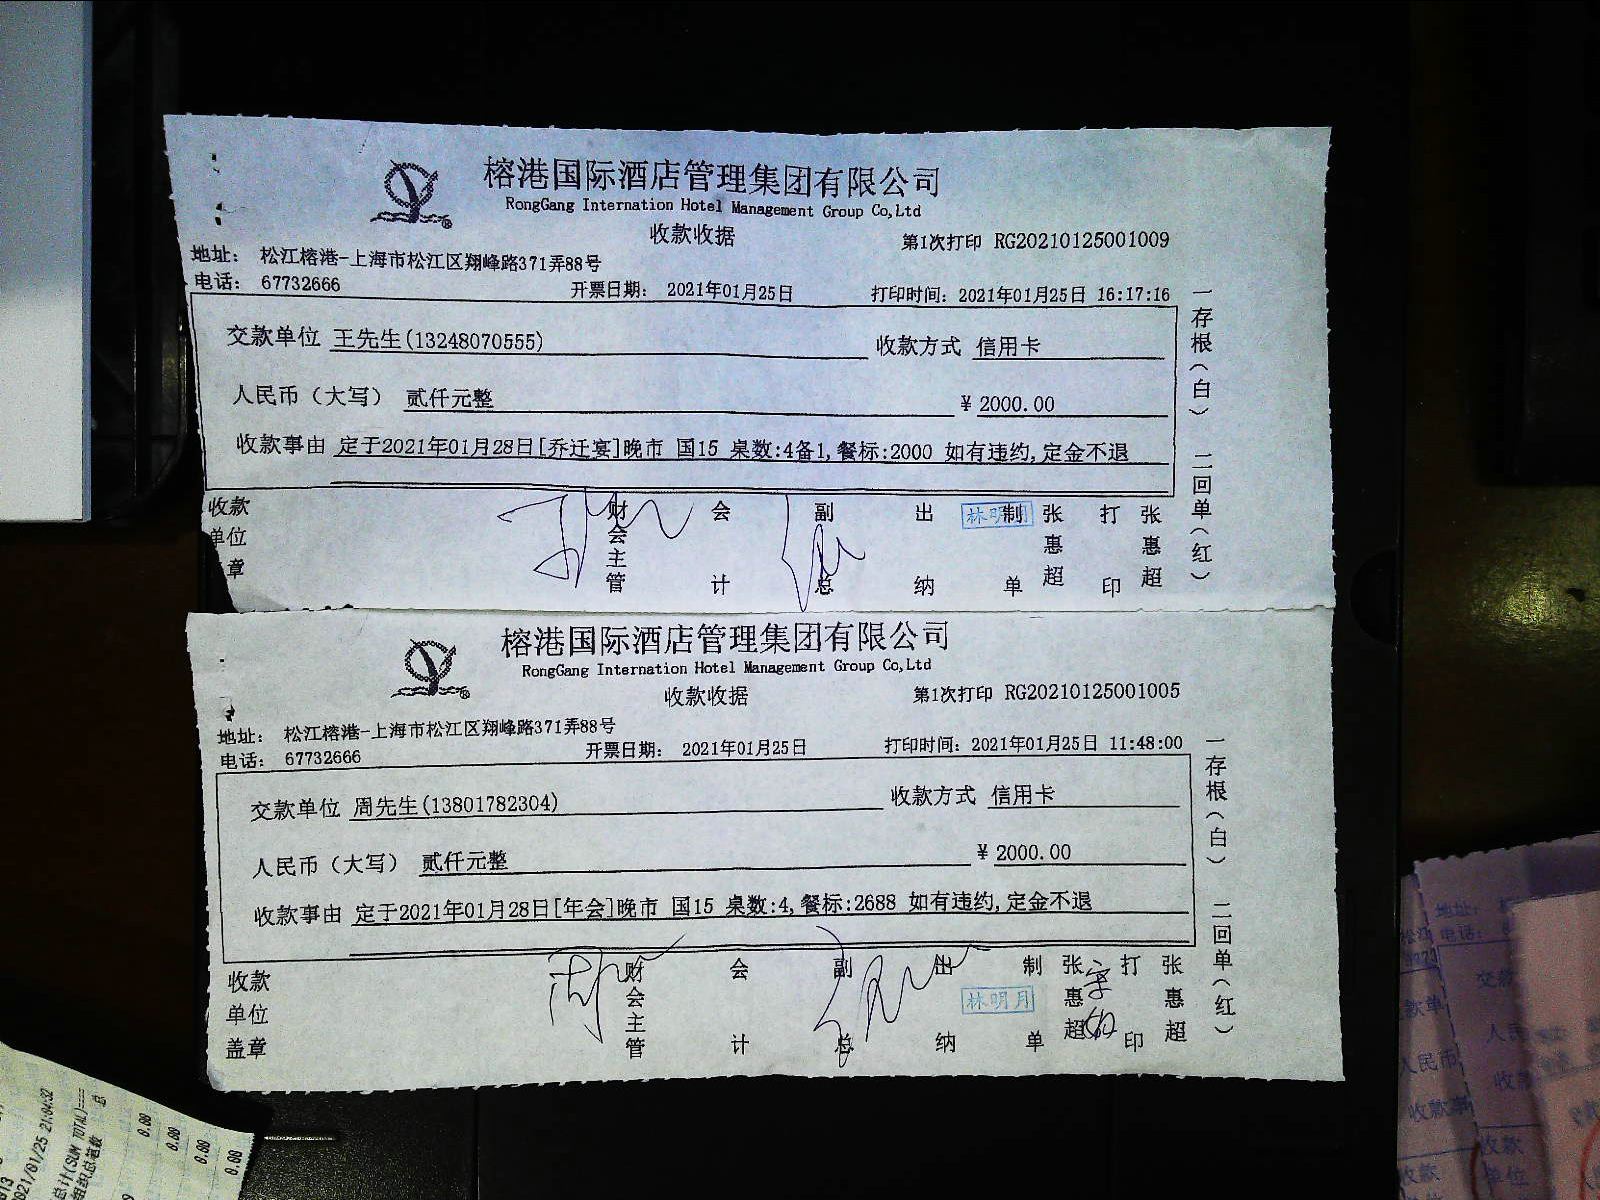 榕港国际酒店管理集团有限公司
RongGang Internation Hotel Management Group Co,Ltd
收款收据
第1次打印 RG20210125001009
地址： 松江榕港-上海市松江区翔峰路371弄88号
电话： 67732666
开票日期： 2021年01月25日
打印时间：2021年01月25日 16:17:16
交款单位 王先生(13248070555)
收款方式 信用卡
人民币（大写） 贰仟元整
¥ 2000.00
收款事由 定于2021年01月28日[乔迁宴]晚市 国15 桌数:4备1,餐标:2000 如有违约,定金不退
一存根（白） 二回单（红）
收款单位 章
财会主管
会计
副总
出纳
林明月
制单
张惠超
打印
张惠超
榕港国际酒店管理集团有限公司
RongGang Internation Hotel Management Group Co,Ltd
收款收据
第1次打印 RG20210125001005
地址： 松江榕港-上海市松江区翔峰路371弄88号
电话： 67732666
开票日期： 2021年01月25日
打印时间：2021年01月25日 11:48:00
交款单位 周先生(13801782304)
收款方式 信用卡
人民币（大写） 贰仟元整
¥ 2000.00
收款事由 定于2021年01月28日[年会]晚市 国15 桌数:4,餐标:2688 如有违约,定金不退
一存根（白） 二回单（红）
收款单位盖章
财会主管
会计
副总
出纳
林明月
制单
张惠超
打印
张惠超
21/01/25 21:04:32
总计(SUM TOTAL)
组织总笔数
总
0.00
0.00
0.00
0.00
地址：
松江 电话：
交款
款单
人民
人民币
收款
收款事
收款
单位
收款